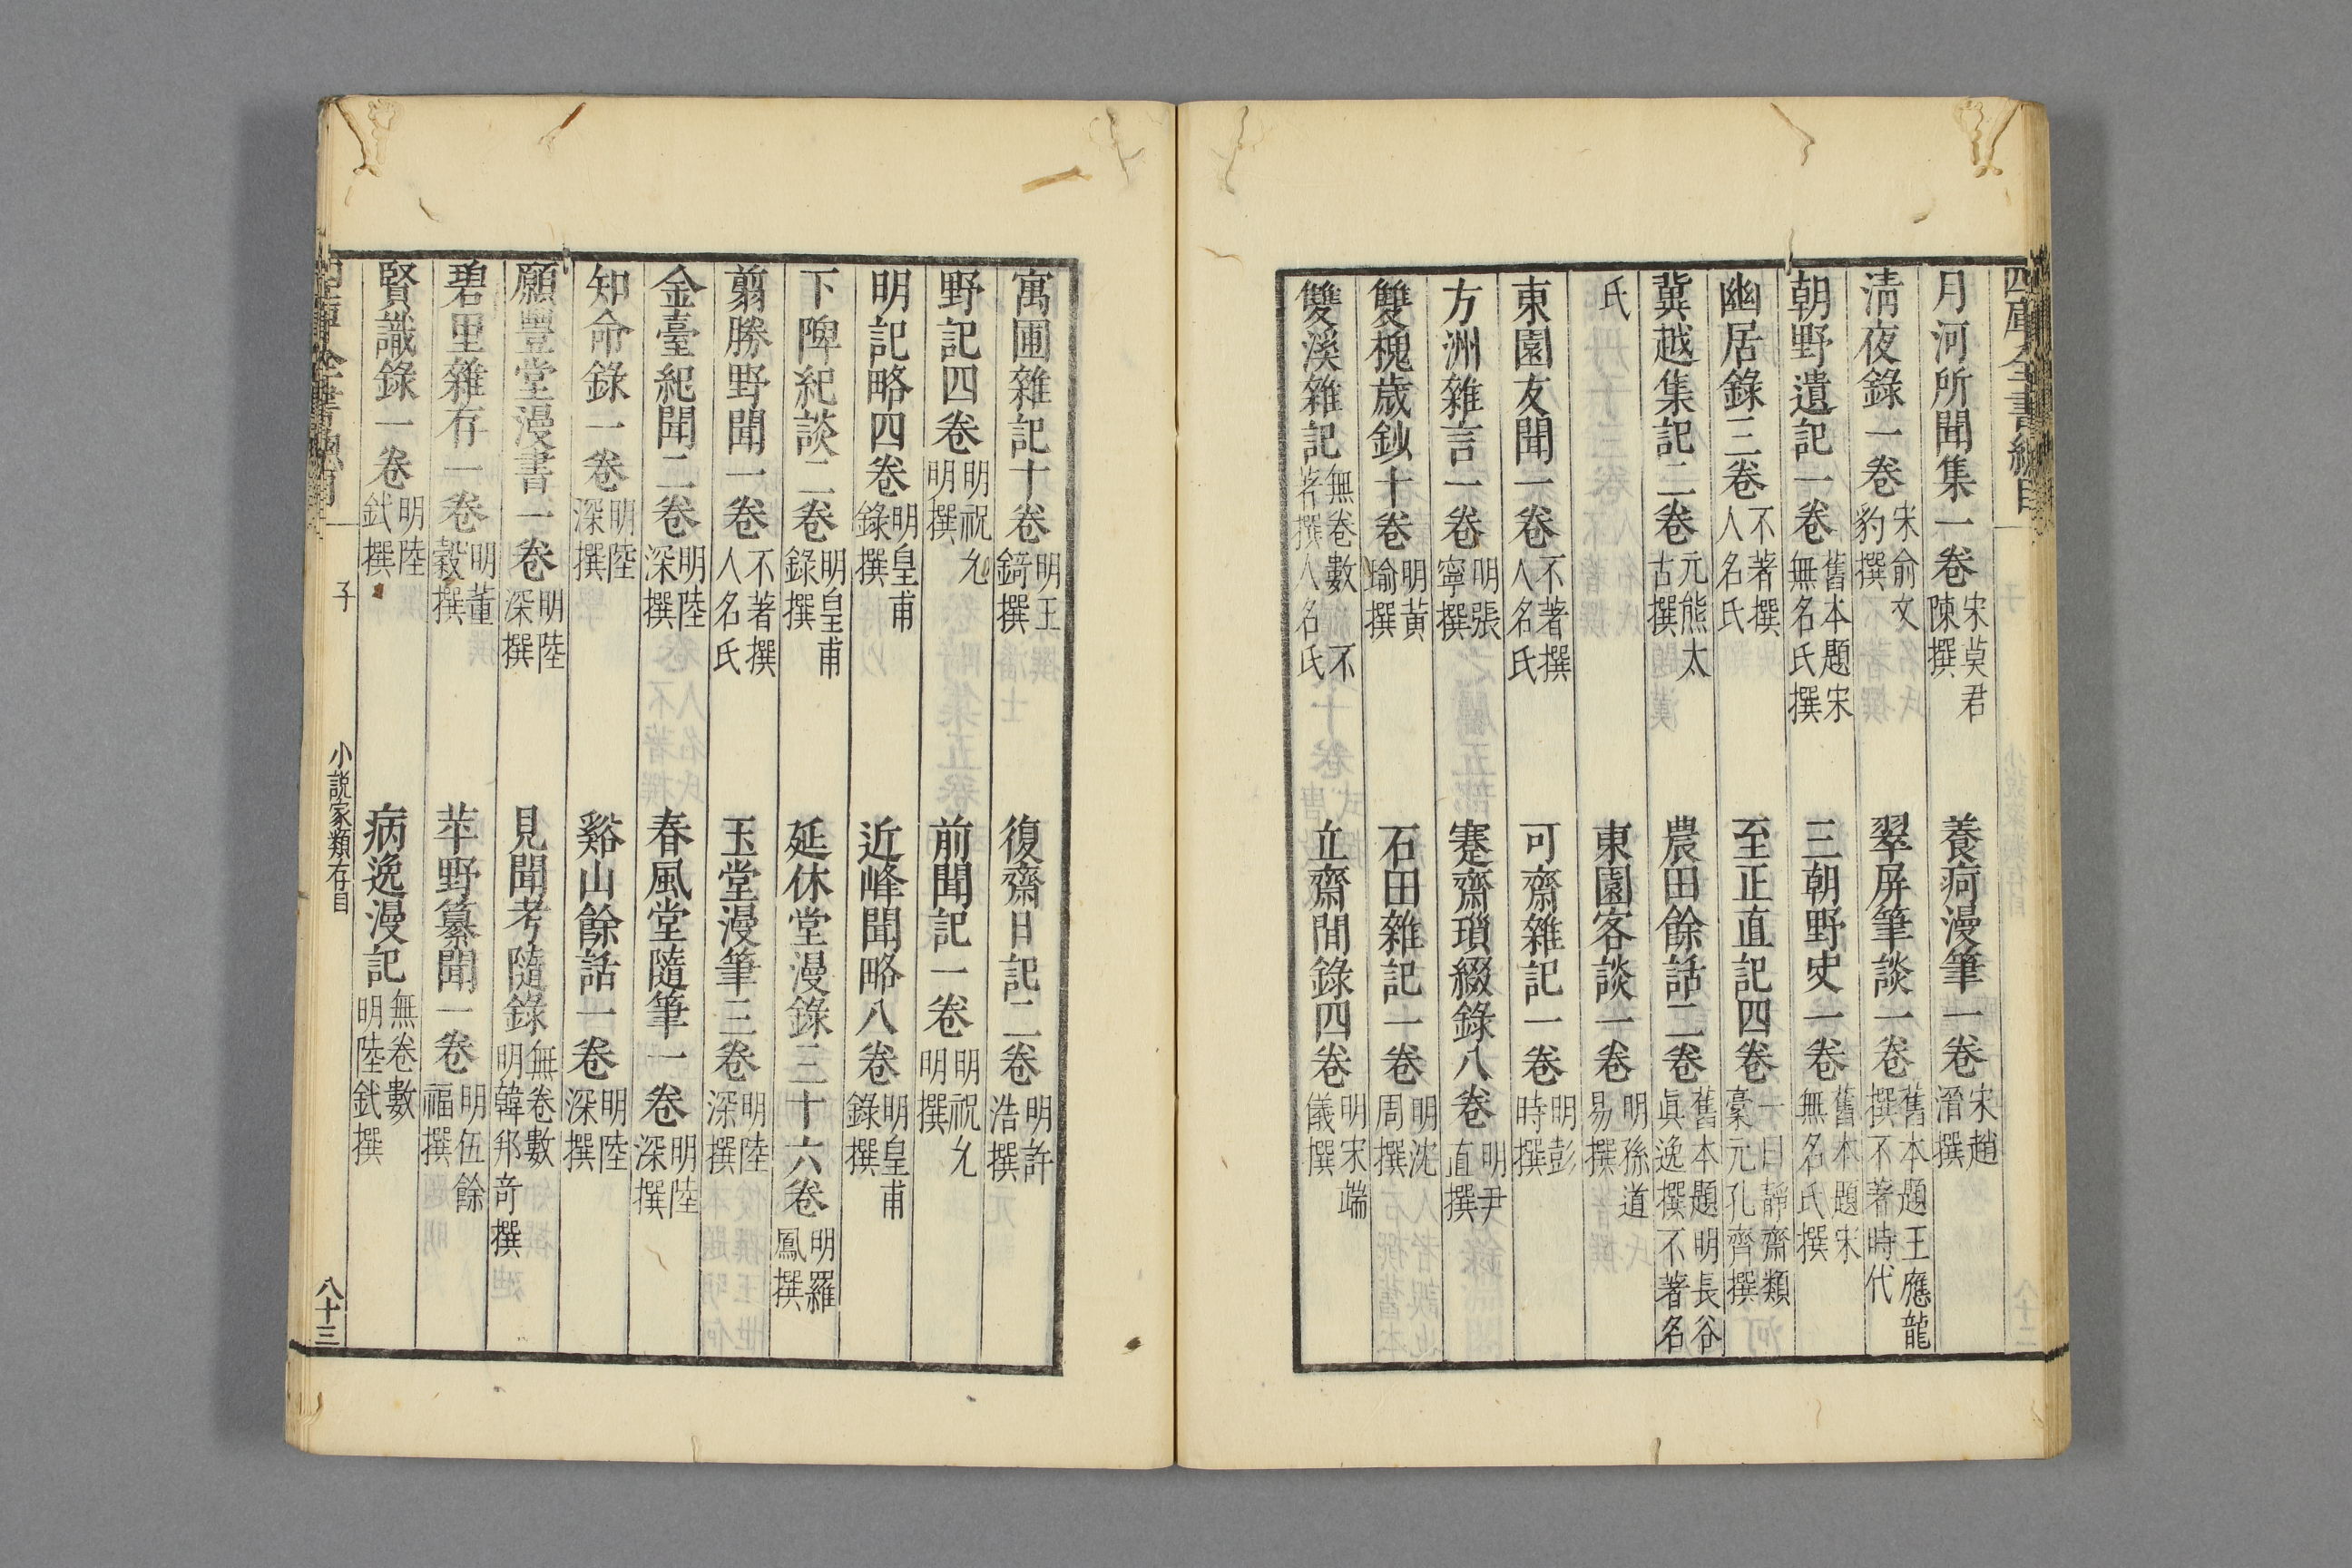 四庫全書總目
月河所聞集一卷宋莫君陳撰 養疴漫筆一卷宋趙溍撰
清夜錄一卷宋俞文豹撰 翠屏筆談一卷舊本題王應龍撰不著時代
朝野遺記一卷舊本題宋無名氏撰 三朝野史一卷舊本題宋無名氏撰
幽居錄三卷不著撰人名氏 至正直記四卷一曰靜齋類稾元孔齊撰
冀越集記二卷元熊太古撰 農田餘話二卷舊本題明長谷眞逸撰不著名
氏 東園客談一卷明孫道易撰
東園友聞一卷不著撰人名氏 可齋雜記一卷明彭時撰
方洲雜言一卷明張寧撰 蹇齋瑣綴錄八卷明尹直撰
雙槐歲鈔十卷明黃瑜撰 石田雜記一卷明沈周撰
雙溪雜記無卷數不著撰人名氏 立齋閒錄四卷明宋端儀撰
寓圃雜記十卷明王錡撰 復齋日記二卷明許浩撰
野記四卷明祝允明撰 前聞記一卷明祝允明撰
明記略四卷明皇甫錄撰 近峰聞略八卷明皇甫錄撰
下陴紀談二卷明皇甫錄撰 延休堂漫錄三十六卷明羅鳳撰
翦勝野聞一卷不著撰人名氏 玉堂漫筆三卷明陸深撰
金臺紀聞二卷明陸深撰 春風堂隨筆一卷明陸深撰
知命錄一卷明陸深撰 谿山餘話一卷明陸深撰
願豐堂漫書一卷明陸深撰 見聞考隨錄無卷數明韓邦奇撰
碧里雜存一卷明董穀撰 苹野纂聞一卷明伍餘福撰
賢識錄一卷明陸釴撰 病逸漫記無卷數明陸釴撰
子 小說家類存目 八十三